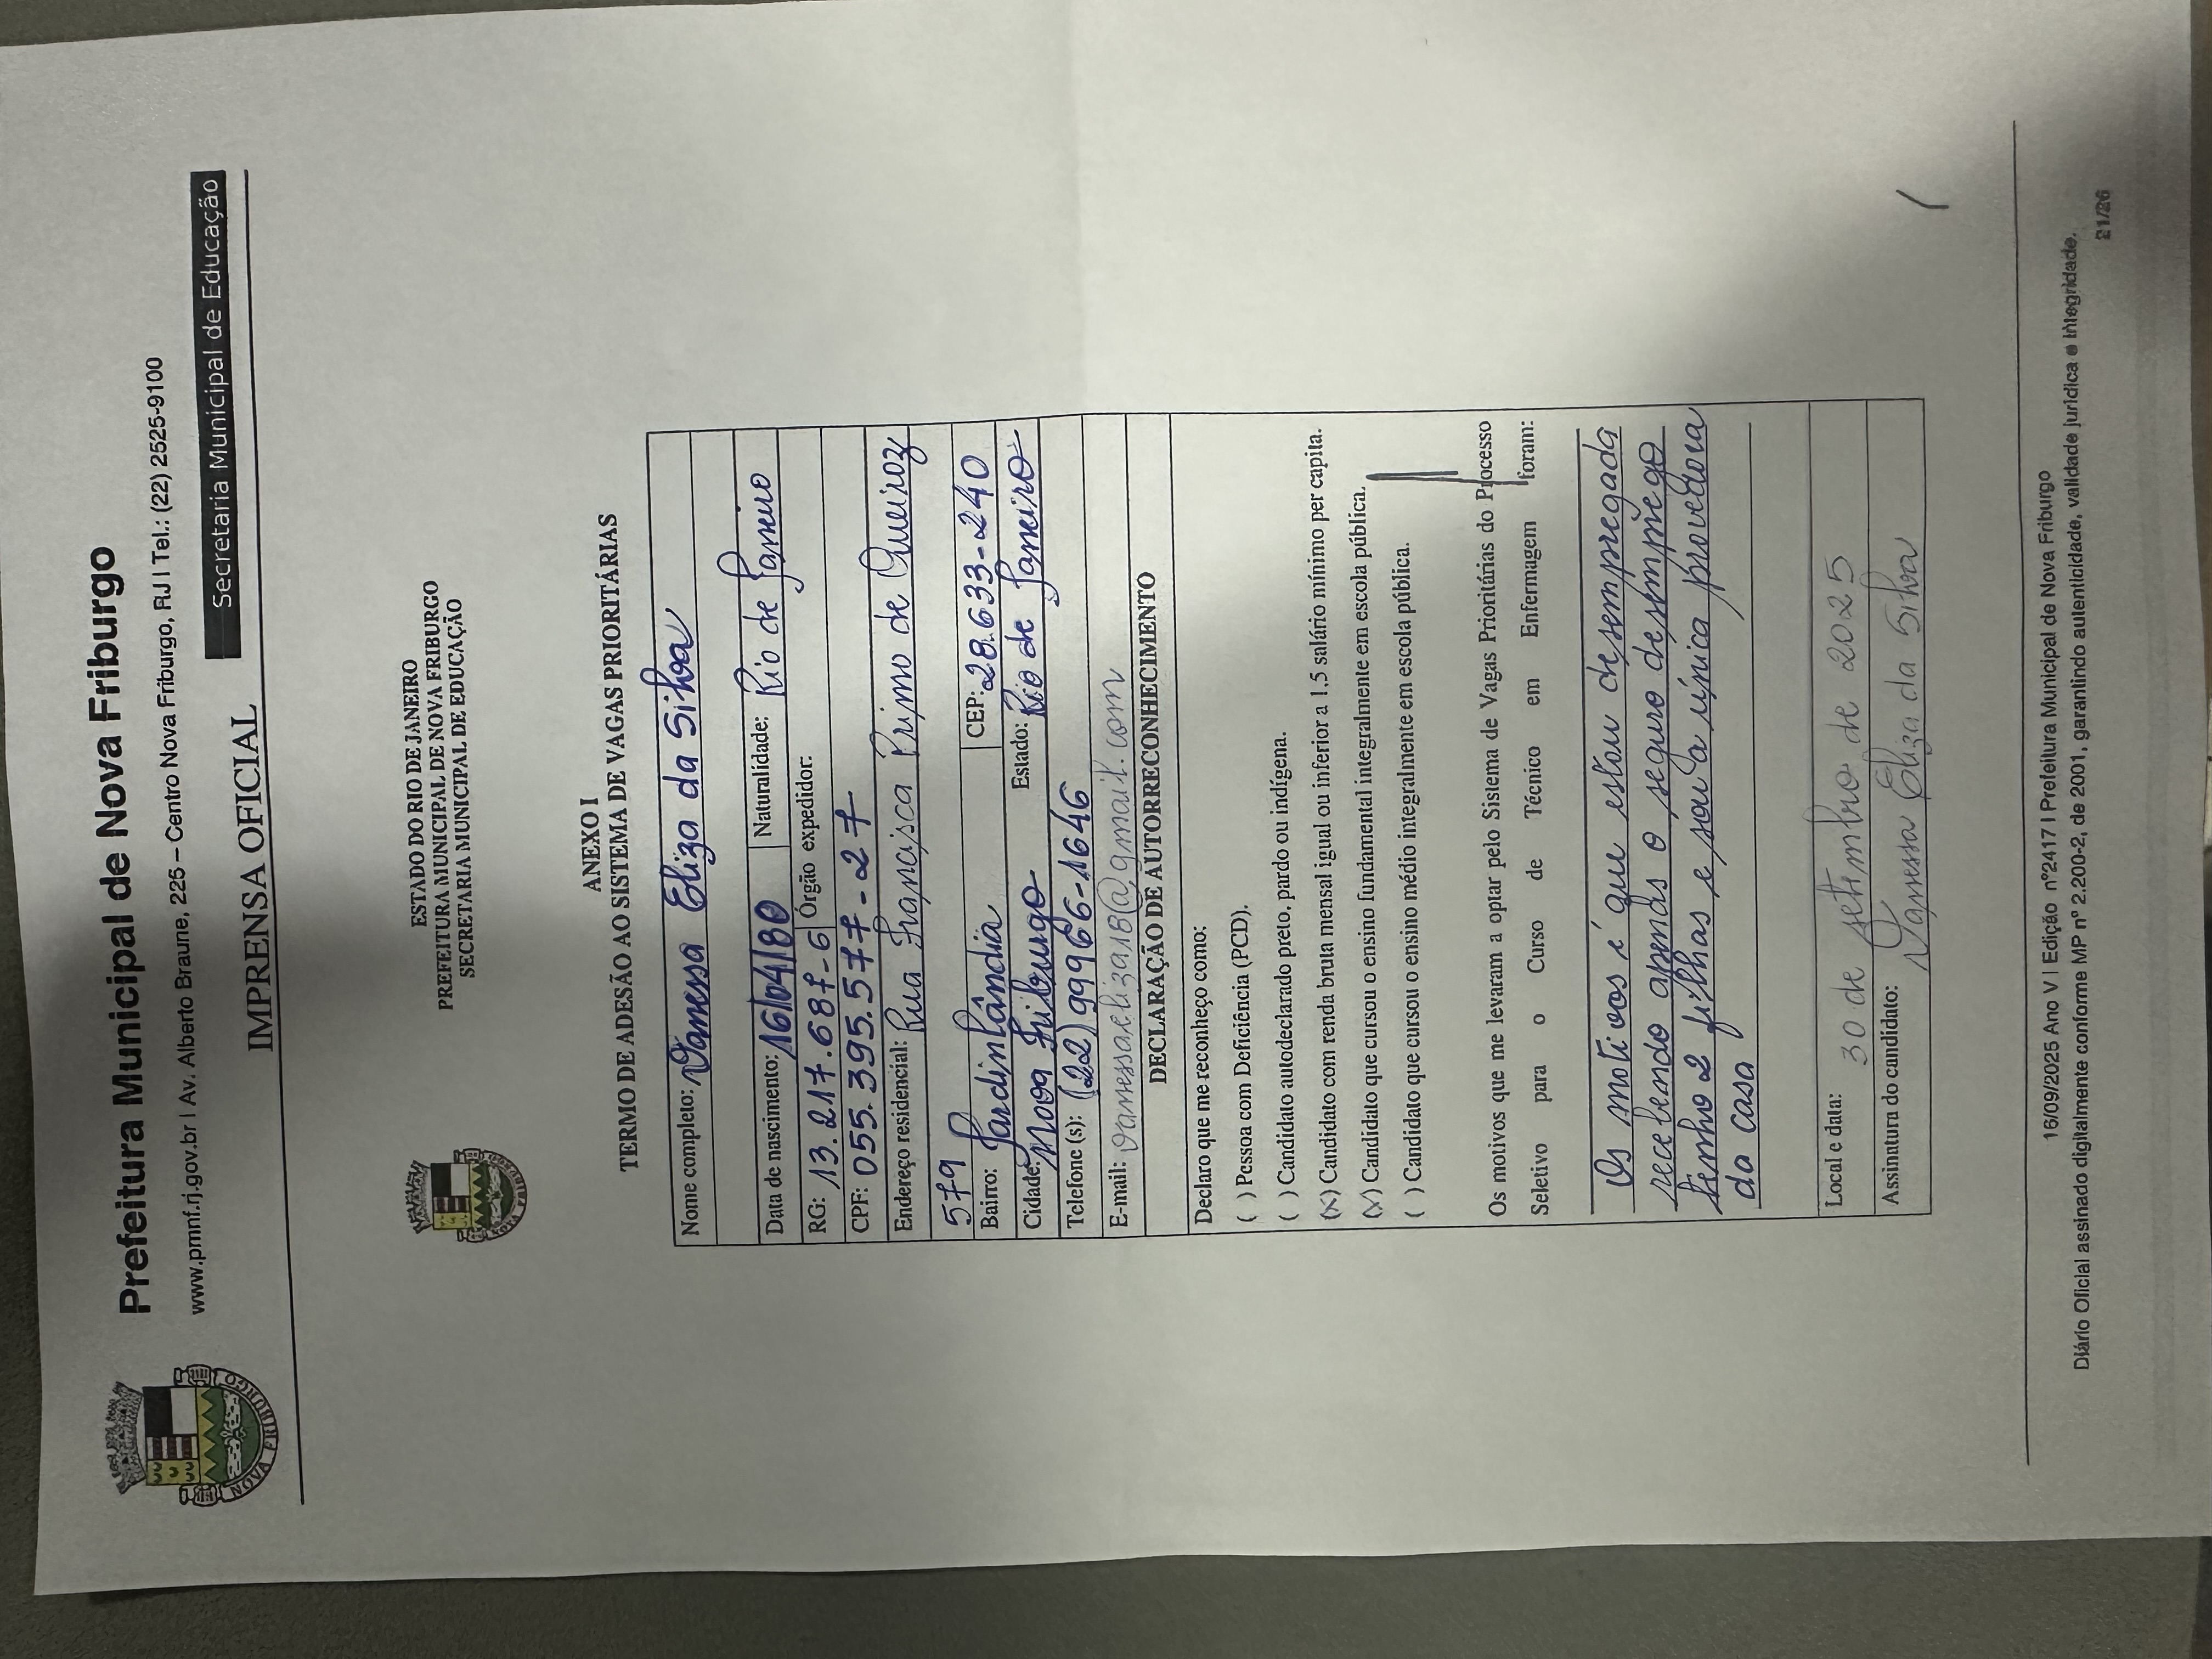 NOVA FRIBURGO
Prefeitura Municipal de Nova Friburgo
www.pmnf.rj.gov.br | Av. Alberto Braune, 225 – Centro Nova Friburgo, RJ | Tel.: (22) 2525-9100
Secretaria Municipal de Educação
IMPRENSA OFICIAL
NOVA FRIBURGO
ESTADO DO RIO DE JANEIRO
PREFEITURA MUNICIPAL DE NOVA FRIBURGO
SECRETARIA MUNICIPAL DE EDUCAÇÃO
ANEXO I
TERMO DE ADESÃO AO SISTEMA DE VAGAS PRIORITÁRIAS
Nome completo: Vanessa Eliza da Silva
Data de nascimento: 16/04/80 Naturalidade: Rio de Janeiro
RG: 13.217.687-6 Órgão expedidor:
CPF: 055.395.577-27
Endereço residencial: Rua Francisca Primo de Queiroz
579
Bairro: Jardinlândia CEP: 28.633-240
Cidade: Nova Friburgo Estado: Rio de Janeiro
Telefone (s): (22) 99966-1646
E-mail: vanessaeliza18@gmail.com
DECLARAÇÃO DE AUTORRECONHECIMENTO
Declaro que me reconheço como:
( ) Pessoa com Deficiência (PCD).
( ) Candidato autodeclarado preto, pardo ou indígena.
(X) Candidato com renda bruta mensal igual ou inferior a 1,5 salário mínimo per capita.
(X) Candidato que cursou o ensino fundamental integralmente em escola pública.
( ) Candidato que cursou o ensino médio integralmente em escola pública.
Os motivos que me levaram a optar pelo Sistema de Vagas Prioritárias do Processo
Seletivo para o Curso de Técnico em Enfermagem foram:
Os motivos é que estou desempregada
recebendo apenas o seguro desemprego
tenho 2 filhas e sou a única provedora
da casa
Local e data: 30 de setembro de 2025
Assinatura do candidato: Vanessa Eliza da Silva
16/09/2025 Ano V | Edição nº2417 | Prefeitura Municipal de Nova Friburgo
Diário Oficial assinado digitalmente conforme MP nº 2.200-2, de 2001, garantindo autenticidade, validade jurídica e integridade.
21/26